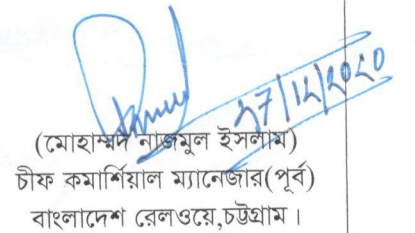 ২৭/১২/২০২০
(মোহাম্মদ নাজমুল ইসলাম)
চীফ কমার্শিয়াল ম্যানেজার(পূর্ব)
বাংলাদেশ রেলওয়ে,চট্টগ্রাম।